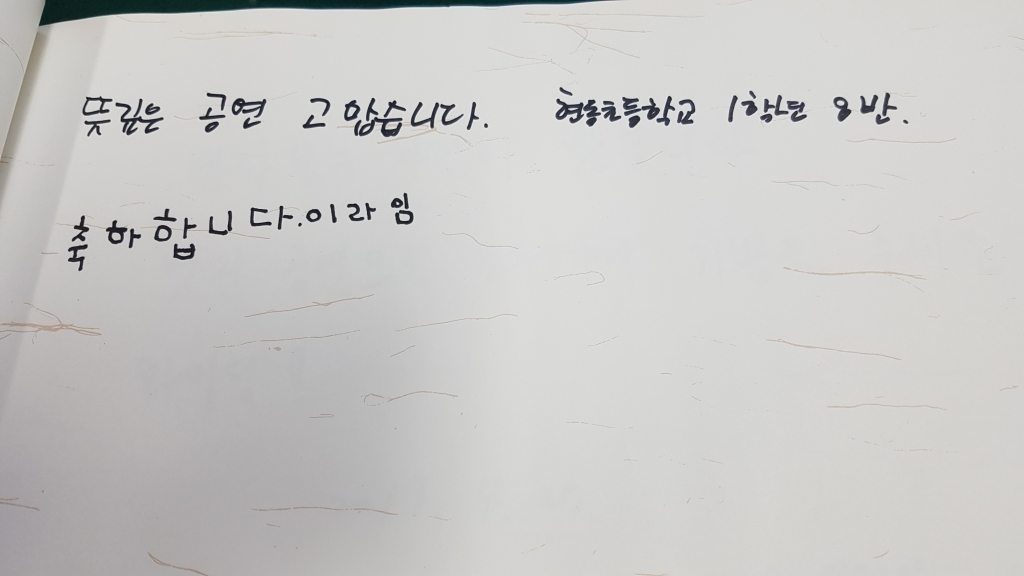 뜻깊은 공연 고맙습니다. 현동초등학교 1학년 8반.
축하합니다.이라임